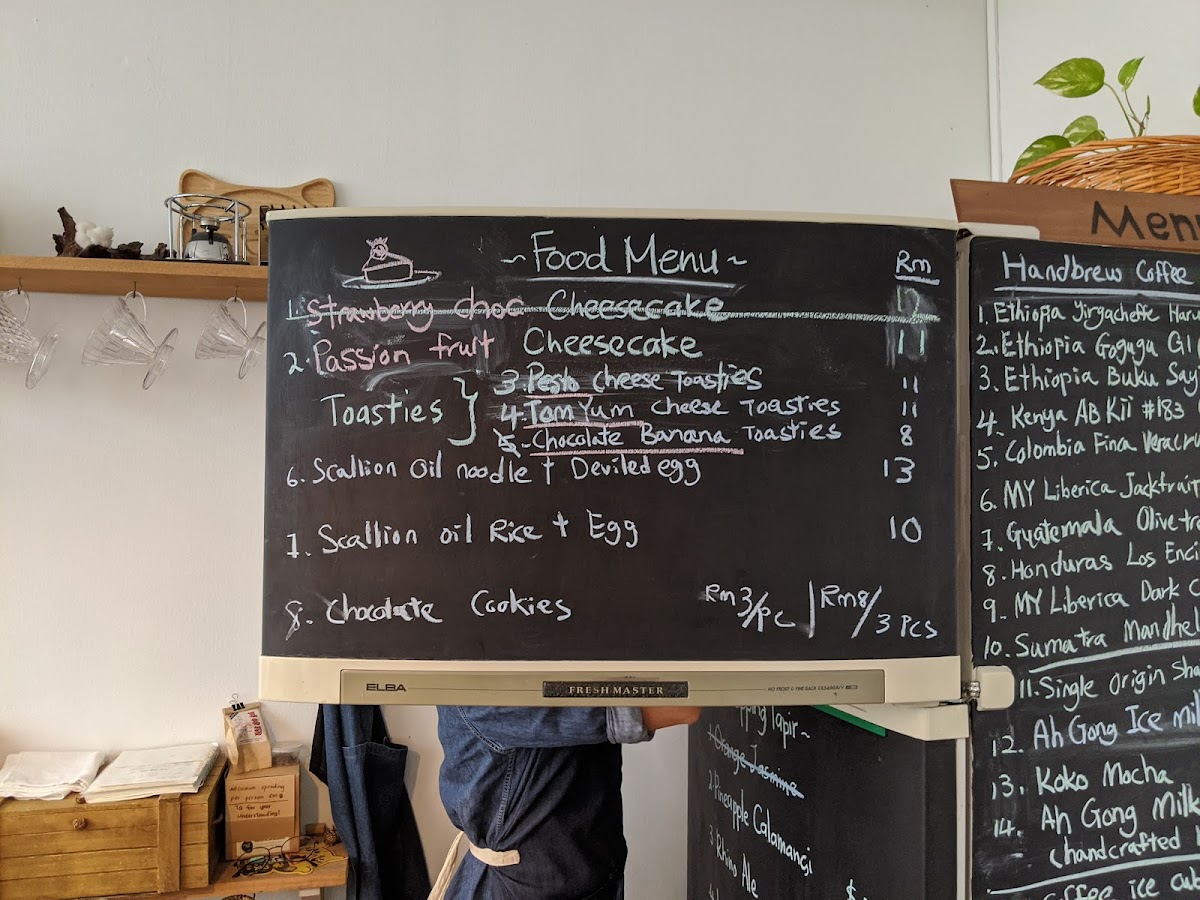 ~ Food Menu ~
Rm
1. Strawberry choc Cheesecake
2. Passion fruit Cheesecake 11
Toasties
3. Pesto Cheese Toasties 11
4. Tom Yum Cheese Toasties 11
5. Chocolate Banana Toasties 8
6. Scallion Oil noodle + Deviled egg 13
7. Scallion oil Rice + Egg 10
8. Chocolate Cookies Rm3/pc | Rm8/3 Pcs
ELBA
FRESHMASTER
Men
Handbrew Coffee
1. Ethiopia Yirgacheffe Haru
2. Ethiopia Goguga
3. Ethiopia Buku Sayi
4. Kenya AB Kii #183
5. Colombia Finca Veracru
6. MY Liberica Jackfruit
7. Guatemala Olivetr
8. Honduras Los Enci
9. MY Liberica Dark
10. Sumatra Mandhel
11. Single Origin Sha
12. Ah Gong Ice
13. Koko Mocha
14. Ah Gong Milk
(handcrafted
Coffee ice cub
Tapir ~
1. Orange Jasmine
2. Pineapple Calamangi
3. Rhino Ale
minimum spending
per person
for your
understanding!